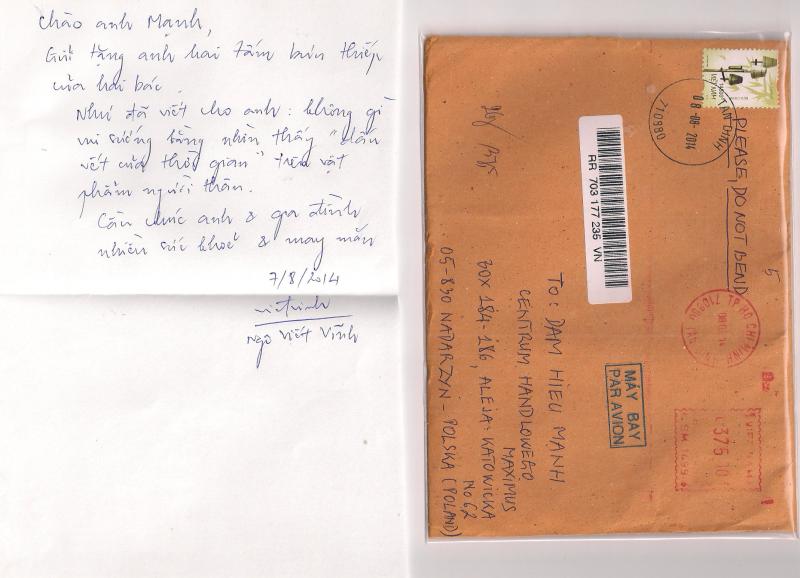 Chào anh Mạnh,
Gửi tặng anh hai tấm bưu thiếp
của hai bác.
Như đã viết cho anh: không gì
vui sướng bằng nhìn thấy "dấu
vết của thời gian" trên vật
phẩm người thân.
Cầu chúc anh & gia đình
nhiều sức khoẻ & may mắn
7/8/2014
Ngô Viết Vĩnh
VIỆT NAM
TAN DINH
08-08-2014
710980
PLEASE, DO NOT BEND
5
RR 703 177 235 VN
TP HO CHI MINH
MÁY BAY
PAR AVION
TO: DAM HIEU MANH
CENTRUM HANDLOWEGO
MAXIMUS
BOX 184-186, ALEJA: KATOWICKA
No 62
05-830 NADARZYN - POLSKA (POLAND)